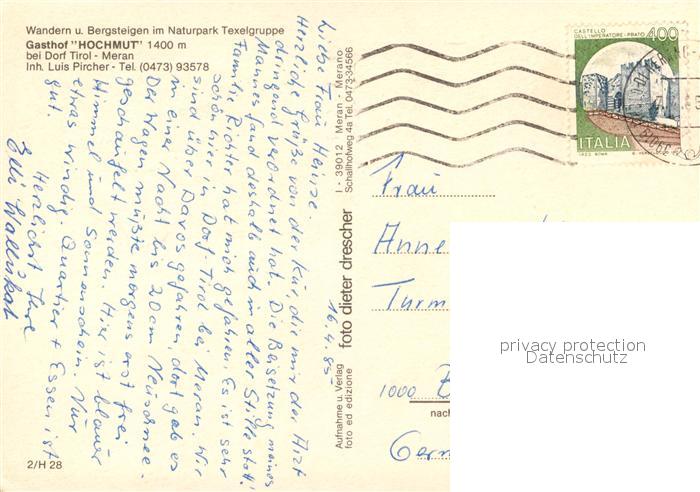 Wandern u. Bergsteigen im Naturpark Texelgruppe
Gasthof "HOCHMUT" 1400 m
bei Dorf Tirol - Meran
Inh. Luis Pircher - Tel. (0473) 93578
16.4.85
Liebe Frau Heinze.
Herzliche Grüße von der Kur, die mir der Arzt
dringend verordnet hat. Die Beisetzung meines
Mannes fand deshalb auch in aller Stille statt.
Familie Richter hat mich gefahren. Es ist sehr
schön hier in Dorf-Tirol bei Meran. Wir
sind über Davos gefahren, dort gab es
in einer Nacht bis 20 cm Neuschnee.
Der Wagen mußte morgens erst frei
geschaufelt werden. Hier ist blauer
Himmel und Sonnenschein. Nur
etwas windig. Quartier + Essen ist
gut.
Herzlichst Ihre
Elli
2/H 28
Aufnahme u. Verlag
foto ed edizione
foto dieter drescher
I - 39012 - Meran - Merano
Schallhofweg 4a Tel. 0473-34566
CASTELLO
DELL'IMPERATORE-PRATO
400
ITALIA
I.P.Z.S. ROMA
Frau
Anne
Turm
1000 B
nach
Germ
privacy protection
Datenschutz